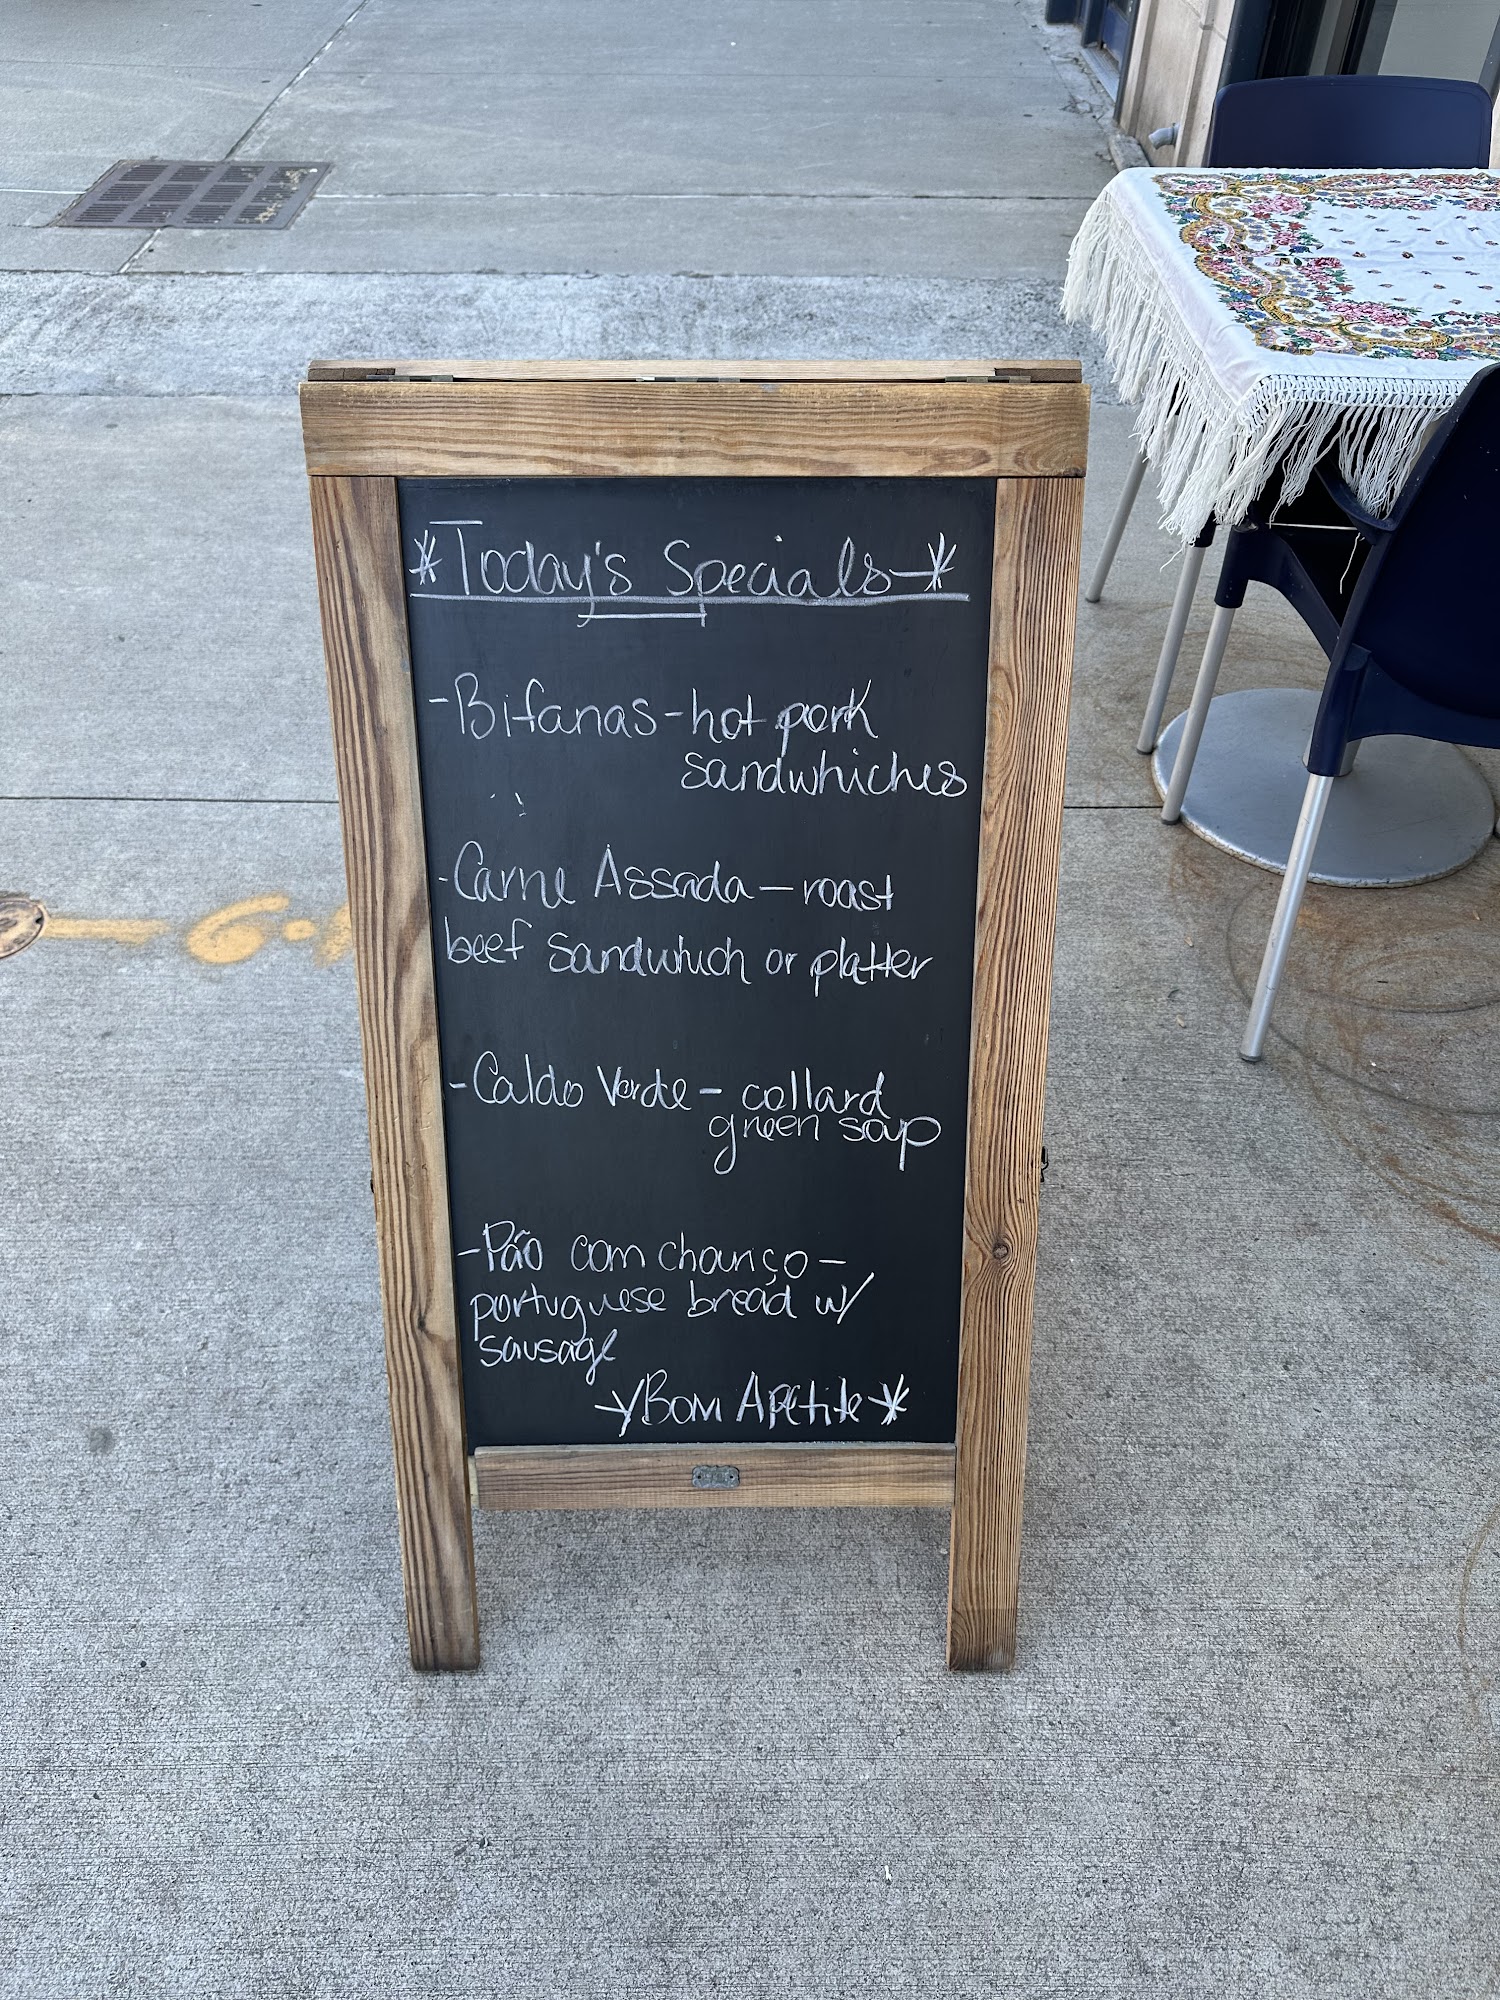 *Today's Specials*
-Bifanas-hot pork
sandwhiches
-Carne Assada-roast
beef sandwhich or platter
-Caldo Verde-collard
green soup
-Pão com chouriço-
portuguese bread w/
sausage
*Bom Apetite*
6.1